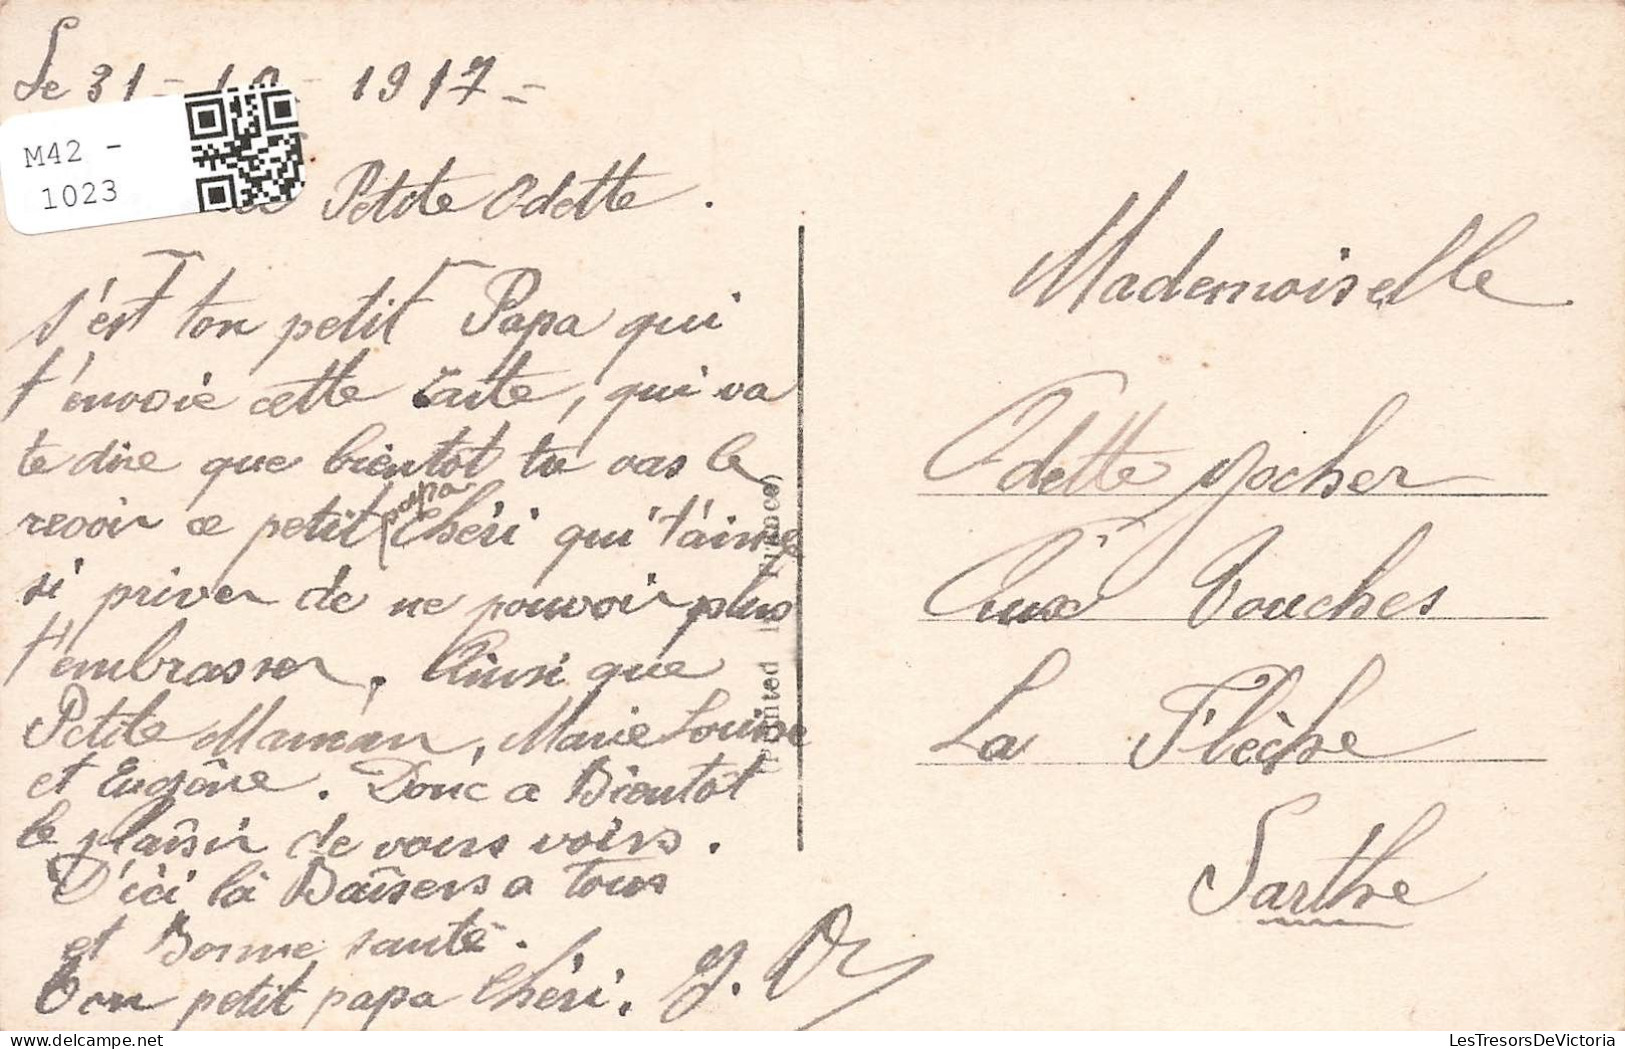 Le 31 - 10 - 1917 =
M42 -
1023
Petite Odette.
s'est ton petit Papa qui
t'envoie cette carte, qui va
te dire que bientot tu vas le
revoir ce petit papa Chéri qui t'aime
si priver de ne pouvoir plus
t'embrasser. Ainsi que
Petite Maman, Marie Louise
et Eugène. Donc a Bientot
le plaisir de vous voirs.
D'ici là Baisers a tous
et Bonne santé.
Ton petit papa Chéri. J.
(Printed in France)
Mademoiselle
Odette
Aux Touches
La Flèche
Sarthe
LesTresorsDeVictoria